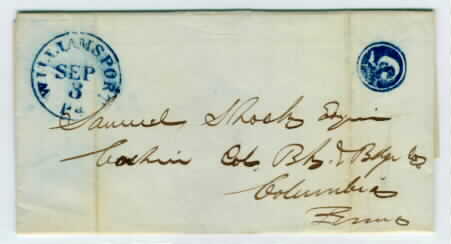 WILLIAMSPORT
SEP
3
Pa
3
Samuel Shock Esquire
Cashier Col. Bk. & Bdge Co
Columbia
Penna